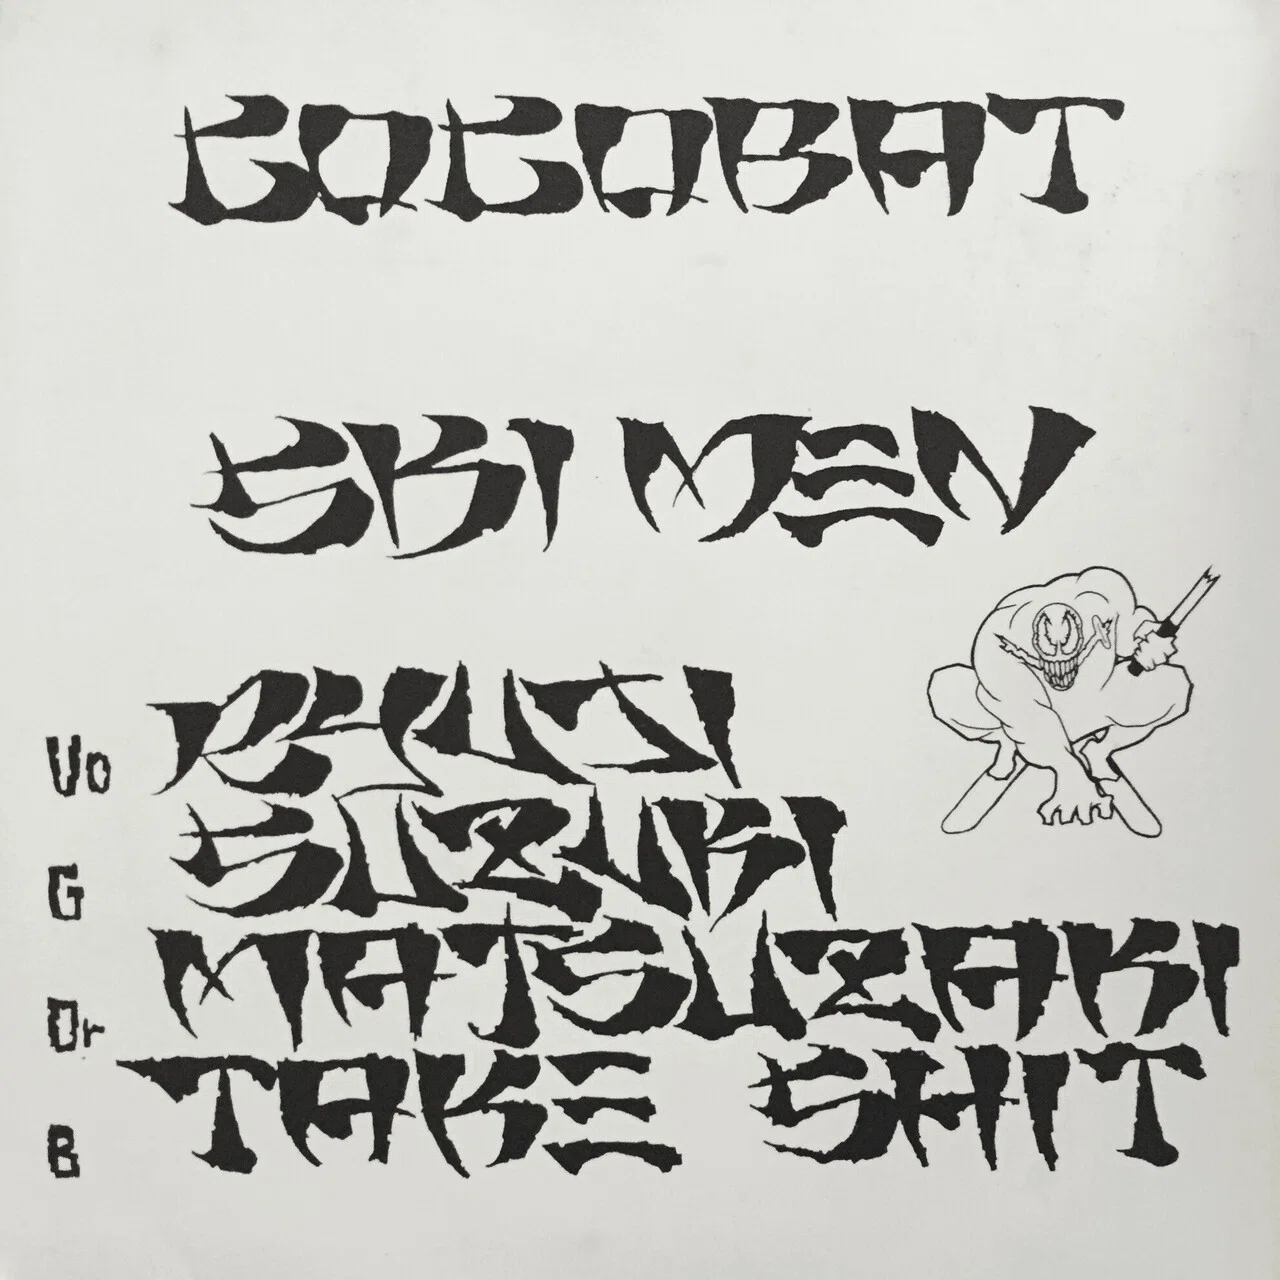 COCOBAT
SKI MEN
Vo RYUJI
G SUZUKI
Dr MATSUZAKI
B TAKE SHIT